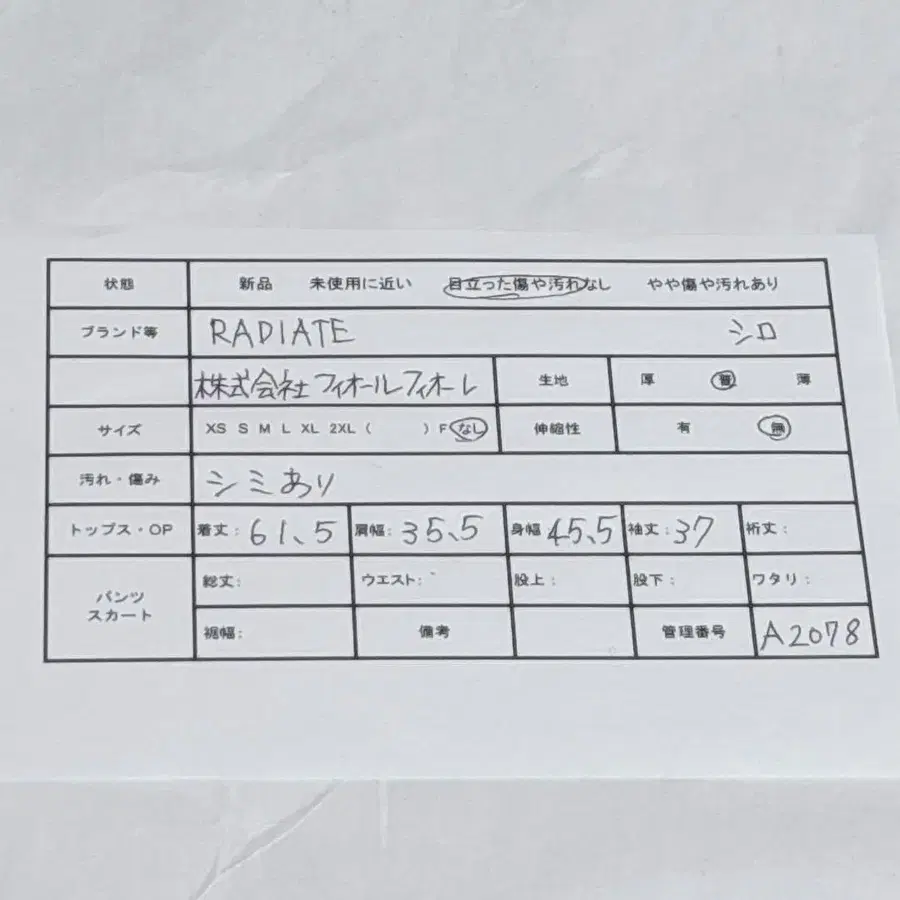 状態 新品 未使用に近い 目立った傷や汚れなし やや傷や汚れあり
ブランド等 RADIATE シロ
株式会社フィオールフィオーレ 生地 厚 普 薄
サイズ XS S M L XL 2XL ( ) F なし 伸縮性 有 無
汚れ・傷み シミあり
トップス・OP 着丈: 61、5 肩幅: 35、5 身幅 45、5 袖丈: 37 裄丈:
パンツ スカート 総丈: ウエスト: 股上: 股下: ワタリ:
裾幅: 備考 管理番号 A2078